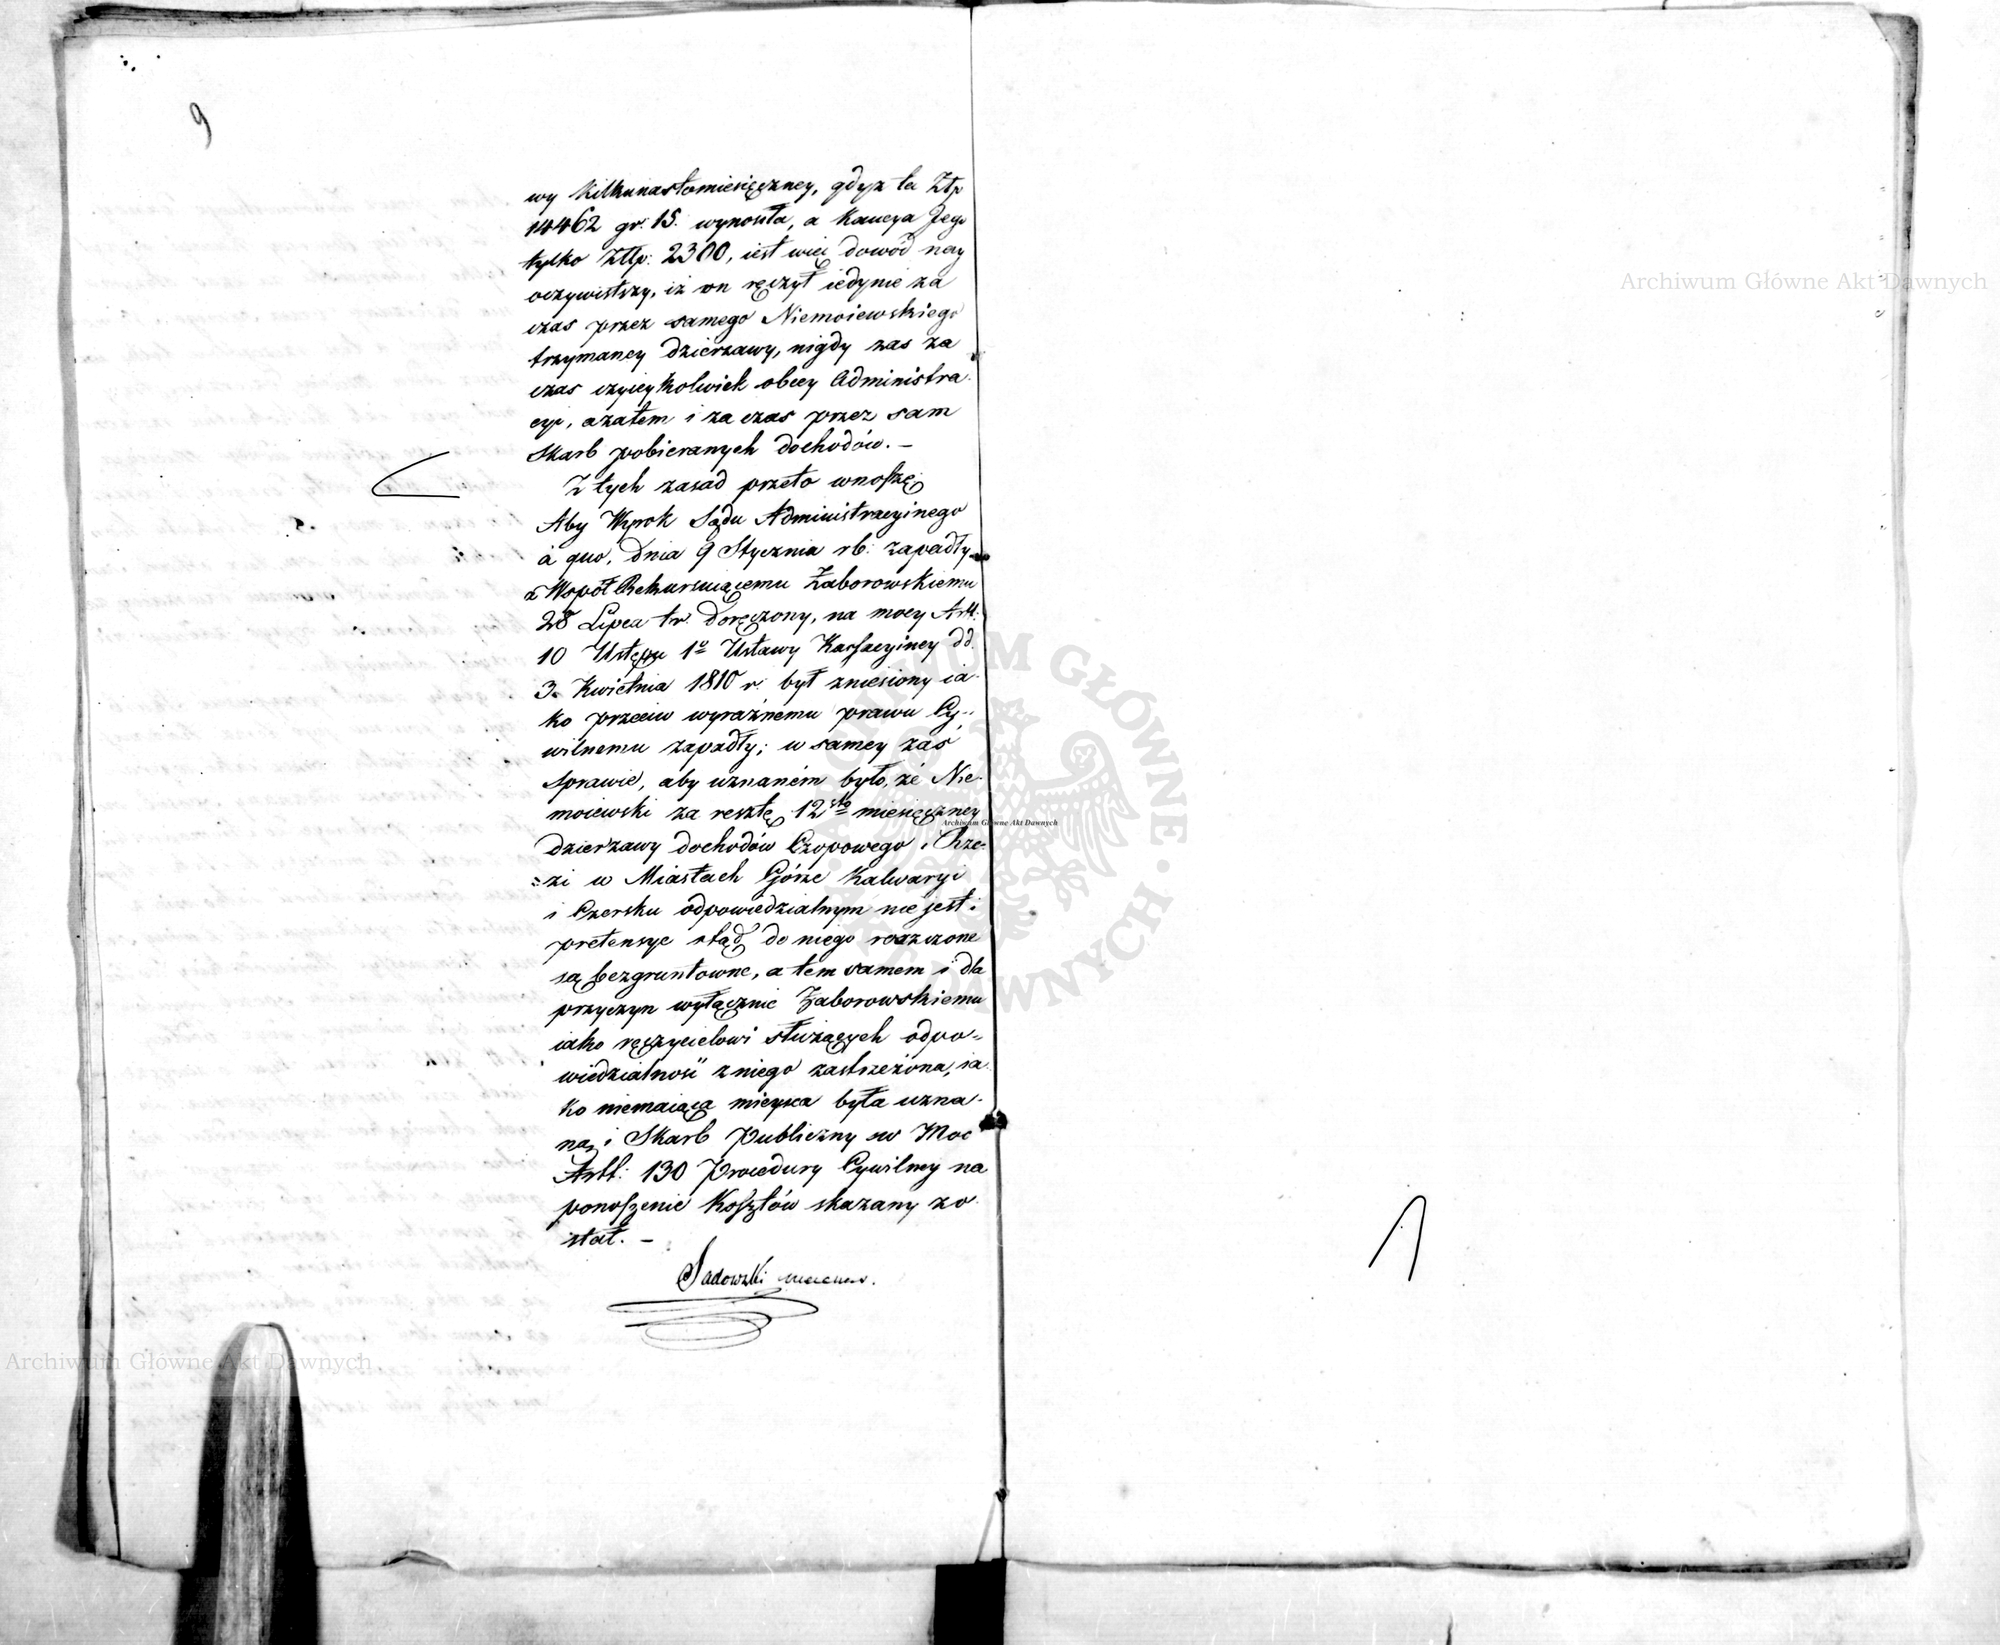 9
wy kilkunastomiesięczney, gdyz ta Ztp
14462 gr: 15. wynosiła, a Kaucya Jego
tylko Ztlp: 2300, iest więc dowód nay
oczywistszy, iż on ręczył iedynie za
czas przez samego Niemoiewskiego
trzymaney dzierzawy, nigdy zas za
czas czyieykolwiek obcey Administra-
cyi, azatem i za czas przez sam
Skarb pobieranych dochodów. –
Z tych zasad przeto wnoszę
Aby Wyrok Sądu Administracyinego
à quo, dnia 9 Stycznia rb: zapadły
a Współ Rekursuiącemu Zaborowskiemu
28 Lipca tr. doręczony, na mocy Artt:
10 Ustępu 1º Ustawy Kassacyiney dd.
3. Kwietnia 1810 r: był zniesiony ia-
ko przeciw wyraźnemu prawu Cy-
wilnemu zapadły; w samey zaś
sprawie, aby uznaném było, że Nie-
moiewski za resztę 12sto miesięczney
dzierzawy dochodów Czopowego i Rze-
zi w Miastach Górze Kalwaryi
i Czersku odpowiedzialnym nie jest i
pretensye stąd do niego roszczone
są bezgruntowne, a tem samem i dla
przyczyn wyłącznie Zaborowskiemu
iako ręczycielowi służących odpo-
wiedzialność z niego zastrzeżona, ia-
ko niemaiąca mieysca była uzna-
ną i Skarb Publiczny w Moc
Artt: 130 Procedury Cywilney na
ponoszenie Kosztów skazany zo-
stał. –
Sadowski
Archiwum Główne Akt Dawnych
Archiwum Główne Akt Dawnych
Archiwum Główne Akt Dawnych